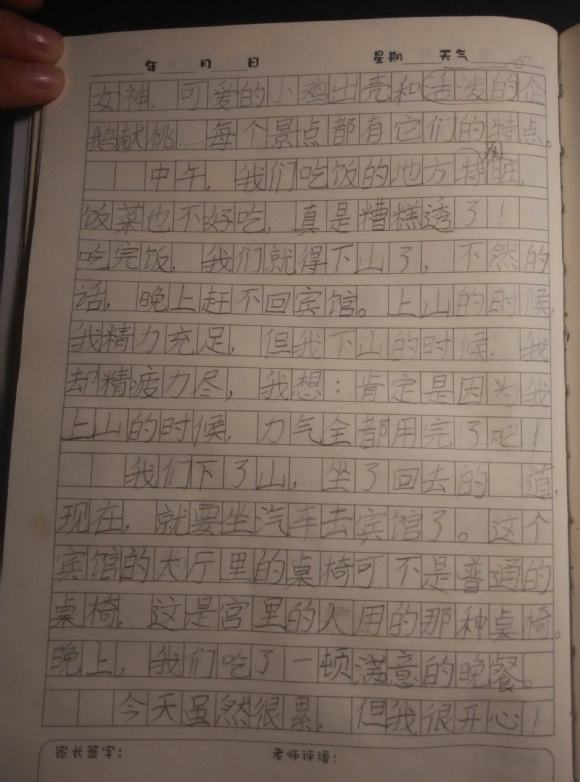 年 月 日 星期 天气
女神、可爱的小鸡出壳和活泼的企
鹅献桃……每个景点都有它们的特点。
中午，我们吃饭的地方特别脏，
饭菜也不好吃，真是糟糕透了！
吃完饭，我们就得下山了，不然的
话，晚上赶不回宾馆。上山的时候，
我精力充足，但我下山的时候，我
却精疲力尽，我想：肯定是因为我
上山的时候，力气全部用完了吧！
我们下了山，坐了回去的 道，
现在，就要坐汽车去宾馆了。这个
宾馆的大厅里的桌椅可不是普通的
桌椅，这是宫里的人用的那种桌椅。
晚上，我们吃了一顿满意的晚餐。
今天虽然很累，但我很开心！
家长签字： 老师评语：